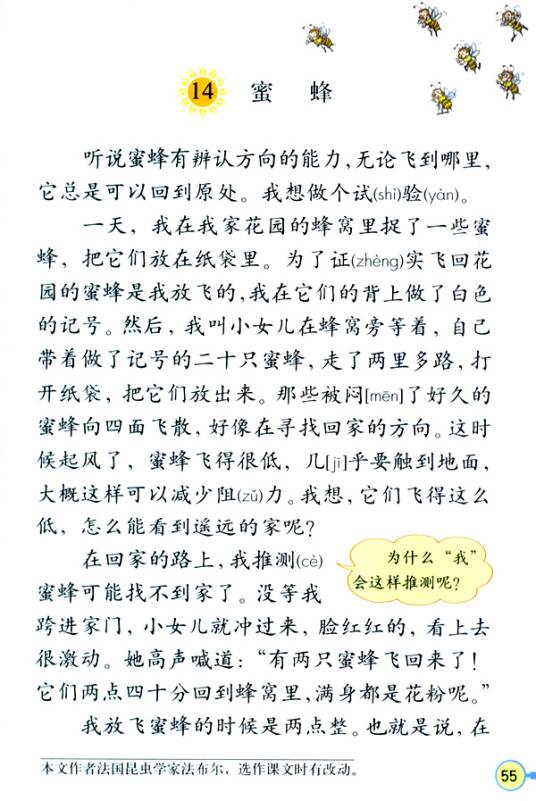 14 蜜 蜂
听说蜜蜂有辨认方向的能力，无论飞到哪里，
它总是可以回到原处。我想做个试(shì)验(yàn)。
一天，我在我家花园的蜂窝里捉了一些蜜
蜂，把它们放在纸袋里。为了证(zhèng)实飞回花
园的蜜蜂是我放飞的，我在它们的背上做了白色
的记号。然后，我叫小女儿在蜂窝旁等着，自己
带着做了记号的二十只蜜蜂，走了两里多路，打
开纸袋，把它们放出来。那些被闷[mēn]了好久的
蜜蜂向四面飞散，好像在寻找回家的方向。这时
候起风了，蜜蜂飞得很低，几[jī]乎要触到地面，
大概这样可以减少阻(zǔ)力。我想，它们飞得这么
低，怎么能看到遥远的家呢？
在回家的路上，我推测(cè)
蜜蜂可能找不到家了。没等我
为什么“我”
会这样推测呢？
跨进家门，小女儿就冲过来，脸红红的，看上去
很激动。她高声喊道：“有两只蜜蜂飞回来了！
它们两点四十分回到蜂窝里，满身都是花粉呢。”
我放飞蜜蜂的时候是两点整。也就是说，在
本文作者法国昆虫学家法布尔，选作课文时有改动。
55